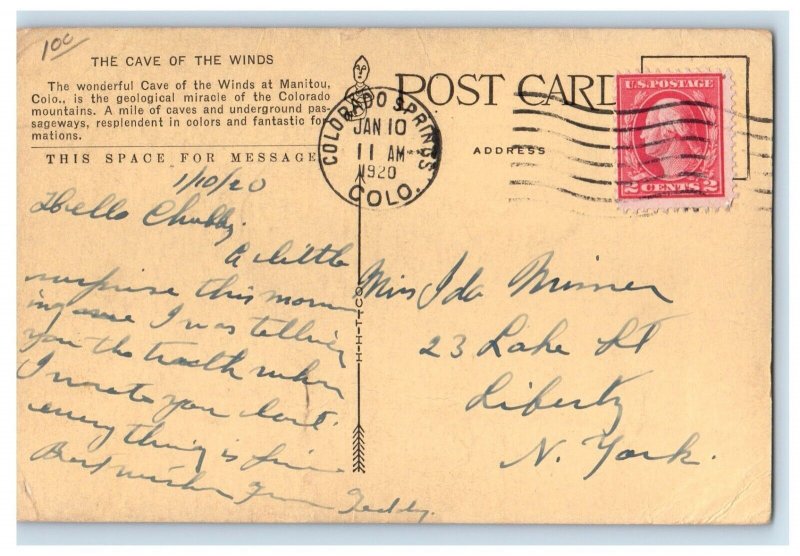 100
THE CAVE OF THE WINDS
The wonderful Cave of the Winds at Manitou,
Colo., is the geological miracle of the Colorado
mountains. A mile of caves and underground pas-
sageways, resplendent in colors and fantastic for
mations.
THIS SPACE FOR MESSAGE
POST CARD
ADDRESS
COLORADO SPRINGS
JAN 10
11 AM
1920
COLO.
U.S. POSTAGE
2 CENTS 2
H-H-T-CO.
1/10/20
Hello Chubby.
A little
surprise this morn
ing I was telling
you the truth when
I wrote you last.
everything is fine
Best wishes From Teddy.
Miss Ida Misner
23 Lake St
Liberty
N. York.